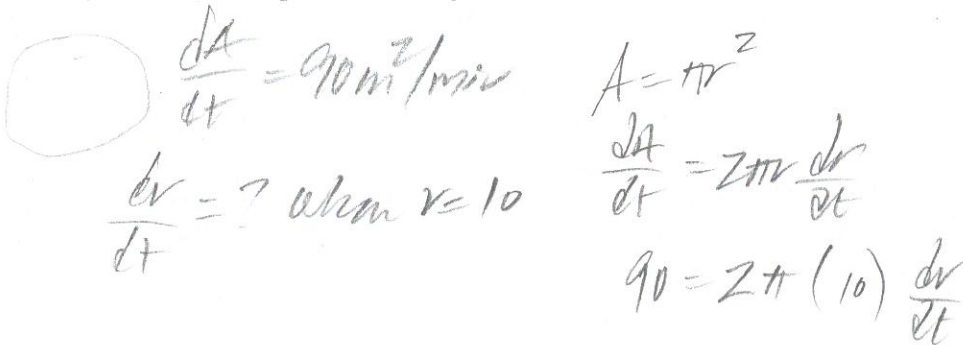 dA/dt = 90m²/min
dr/dt = ? when r = 10
A = πr²
dA/dt = 2πr dr/dt
90 = 2π (10) dr/dt